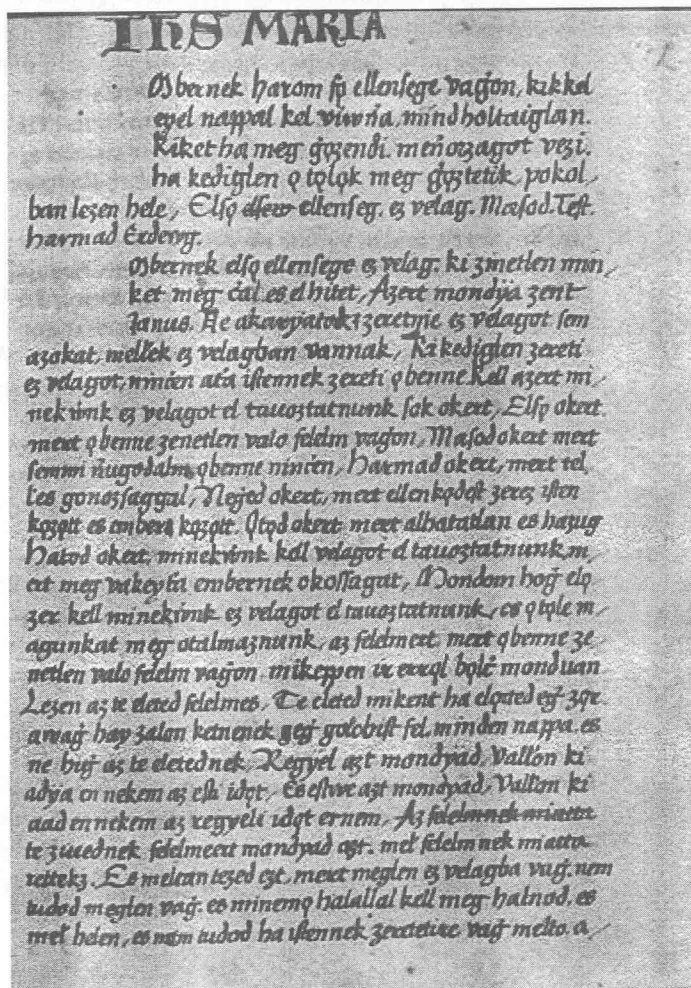 IhS MARIA
Embernek harom fo̧ ellenſege vaġon, kikkel
eyel nappal kel viwńa, mind holtaiglan.
Kiket ha meg ġo̧zendi. meńorzagot vezi.
ha kediglen o̧ to̧lo̧k meg ġo̧ztetik, pokol,
ban lezen hele, Elſo̧ ellenſeg. ez velag. Maſod. Teſt.
harmad Erdeng.
Embernek elſo̧ ellenſege ez velag, ki zmetlen min,
ket meg ćal, es el hitet, Azert mondÿa zent
Ianus. Ne akarÿatok zeretńie ez velagot ſem
azokat, mellek ez velagban vannak, Ki kediglen zereti
ez velagot, ninćen ata iſtennek zereti o̧benne kell azert mi,
nekvnk ez velagot el tauoztatnunk ſok okert, Elſo̧ okert.
mert o̧benne zenetlen valo felelm vaġon, Maſod okert mert
ſemmi ńugodalm o̧benne ninćen, harmad okert, mert tel,
les gonozſaggal, Neġed okert, mert ellenko̧do̧ſt zerez iſten
ko̧zo̧tt es ember ko̧zo̧tt. O̧to̧d okert mert alhatatlan es hazug
Hatod okert, minekvnk kell velagot el tauoztatnunk m,
ert meg vakeyta embernek okoſſagat, Mondom hoġ elo̧
zer kell minekvnk ez velagot el tauoztatnunk, es o̧ to̧le m,
agunkat meg otalmaznunk, az felelmert, mert o̧benne ze,
netlen valo felelm vaġon, mikeppen ir erro̧l bo̧lć monduan
Lezen az te eleted felelmes, Te eleted mikent ha elo̧tted eġ zo̧r
 hay zalon ketnenek fel, minden nappa. es
ne hiġ az te eletednek, Regyel azt mondÿad, Vallon ki
adÿa en nekem az eſti ido̧t, Es eſtwe azt mondÿad, Vallon ki
aad ennekem az regyeli ido̧t ernem, Az felelmnek miatta
te ziuednek felelmeert mandÿad azt. mel felelmnek miatta
rettekz. Es meltan tezed ezt, mert meglen ez velagba vaġ, nem
tudod meglen vaġ. es minemo̧ halallal kell meg halnod. es
mel helen, es nem tudod ha iſtennek zeretetire vaġ melto. a,